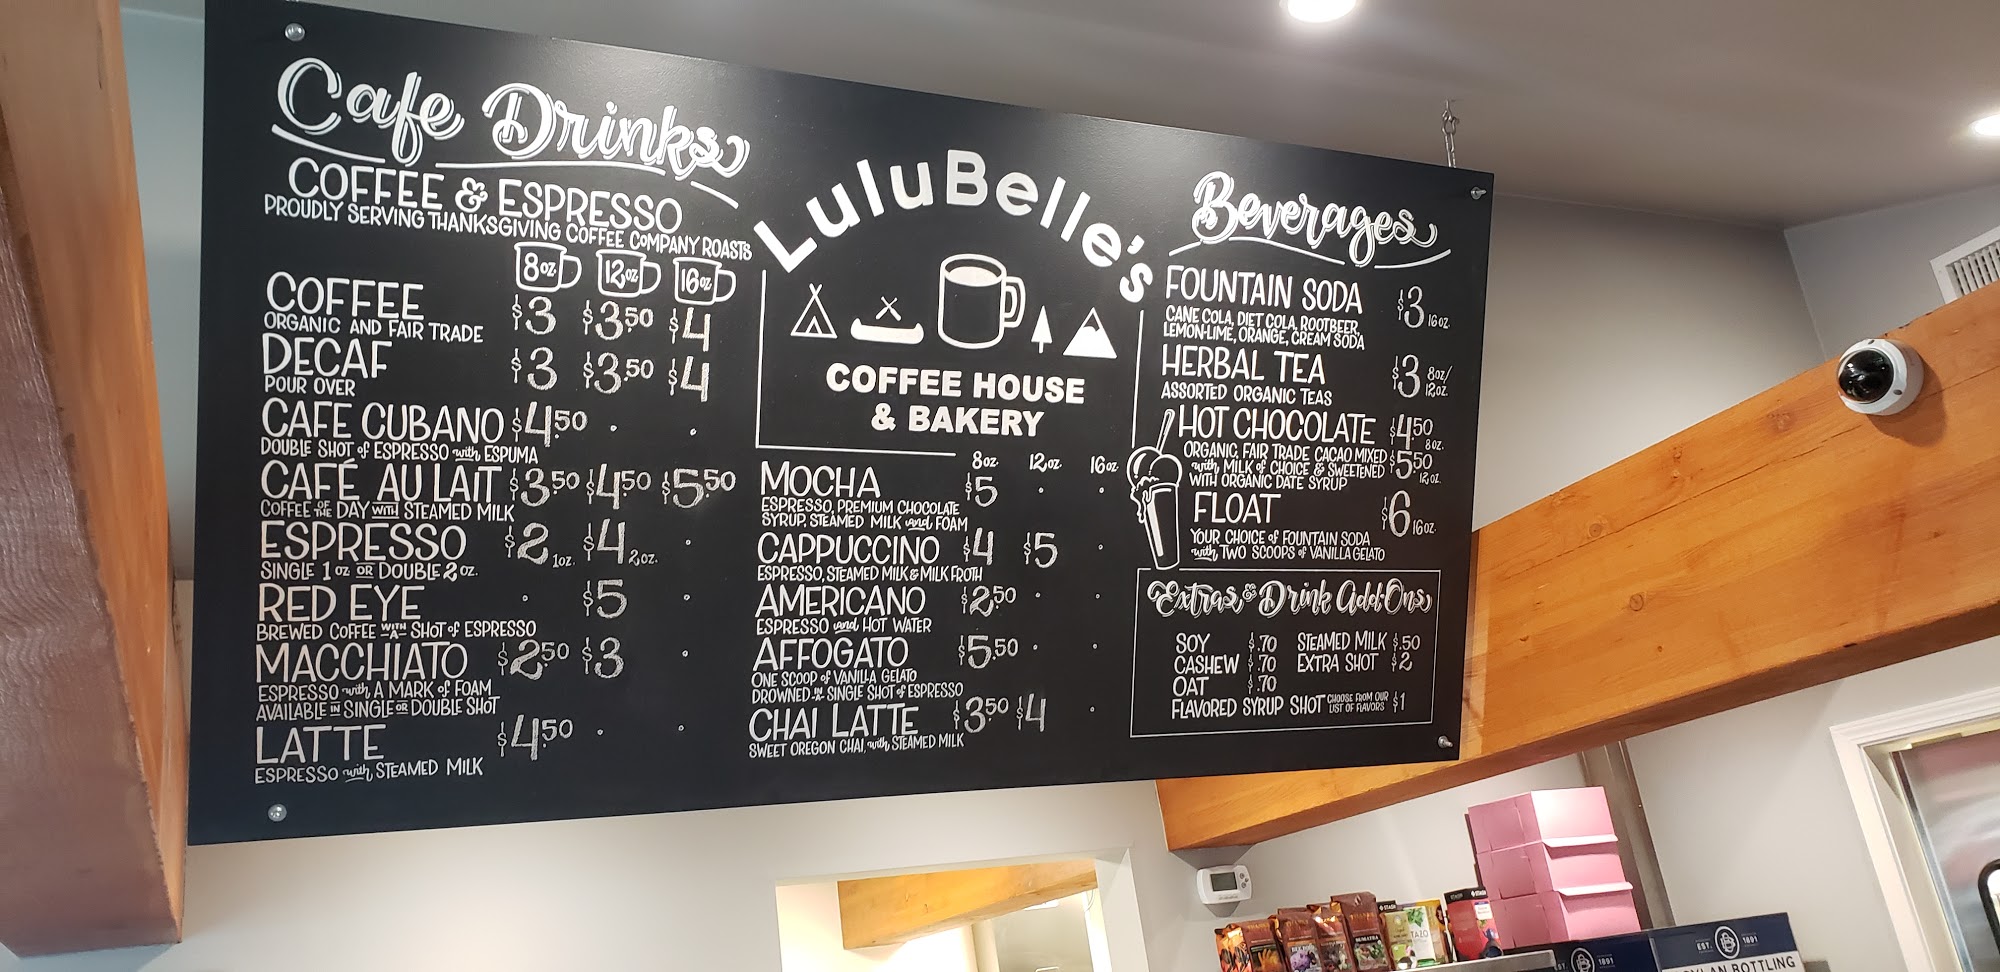 Cafe Drinks
COFFEE & ESPRESSO
PROUDLY SERVING THANKSGIVING COFFEE COMPANY ROASTS
8oz 12oz 16oz
COFFEE $3 $3.50 $4
ORGANIC AND FAIR TRADE
DECAF $3 $3.50 $4
POUR OVER
CAFE CUBANO $4.50 · ·
DOUBLE SHOT of ESPRESSO with ESPUMA
CAFÉ AU LAIT $3.50 $4.50 $5.50
COFFEE OF THE DAY WITH STEAMED MILK
ESPRESSO $2 1oz. $4 2oz. ·
SINGLE 1 oz OR DOUBLE 2 oz.
RED EYE · $5 ·
BREWED COFFEE WITH A SHOT of ESPRESSO
MACCHIATO $2.50 $3 ·
ESPRESSO with A MARK of FOAM
AVAILABLE IN SINGLE OR DOUBLE SHOT
LATTE $4.50 · ·
ESPRESSO with STEAMED MILK
LuluBelle's
COFFEE HOUSE
& BAKERY
8oz 12oz 16oz
MOCHA $5 · ·
ESPRESSO, PREMIUM CHOCOLATE
SYRUP, STEAMED MILK and FOAM
CAPPUCCINO $4 $5 ·
ESPRESSO, STEAMED MILK & MILK FROTH
AMERICANO $2.50 · ·
ESPRESSO and HOT WATER
AFFOGATO $5.50 · ·
ONE SCOOP of VANILLA GELATO
DROWNED IN A SINGLE SHOT of ESPRESSO
CHAI LATTE $3.50 $4 ·
SWEET OREGON CHAI, with STEAMED MILK
Beverages
FOUNTAIN SODA $3 16oz.
CANE COLA, DIET COLA, ROOTBEER,
LEMON-LIME, ORANGE, CREAM SODA
HERBAL TEA $3 8oz/ 12oz.
ASSORTED ORGANIC TEAS
HOT CHOCOLATE $4.50 8oz.
ORGANIC, FAIR TRADE CACAO MIXED
with MILK of CHOICE & SWEETENED $5.50 12oz.
WITH ORGANIC DATE SYRUP
FLOAT $6 16oz.
YOUR CHOICE of FOUNTAIN SODA
with TWO SCOOPS of VANILLA GELATO
Extras & Drink Add-Ons
SOY $.70 STEAMED MILK $.50
CASHEW $.70 EXTRA SHOT $2
OAT $.70
FLAVORED SYRUP SHOT CHOOSE FROM OUR LIST OF FLAVORS $1
STASH
TAZO
SUMATRA
EST. 1891
1891
BOTTLING